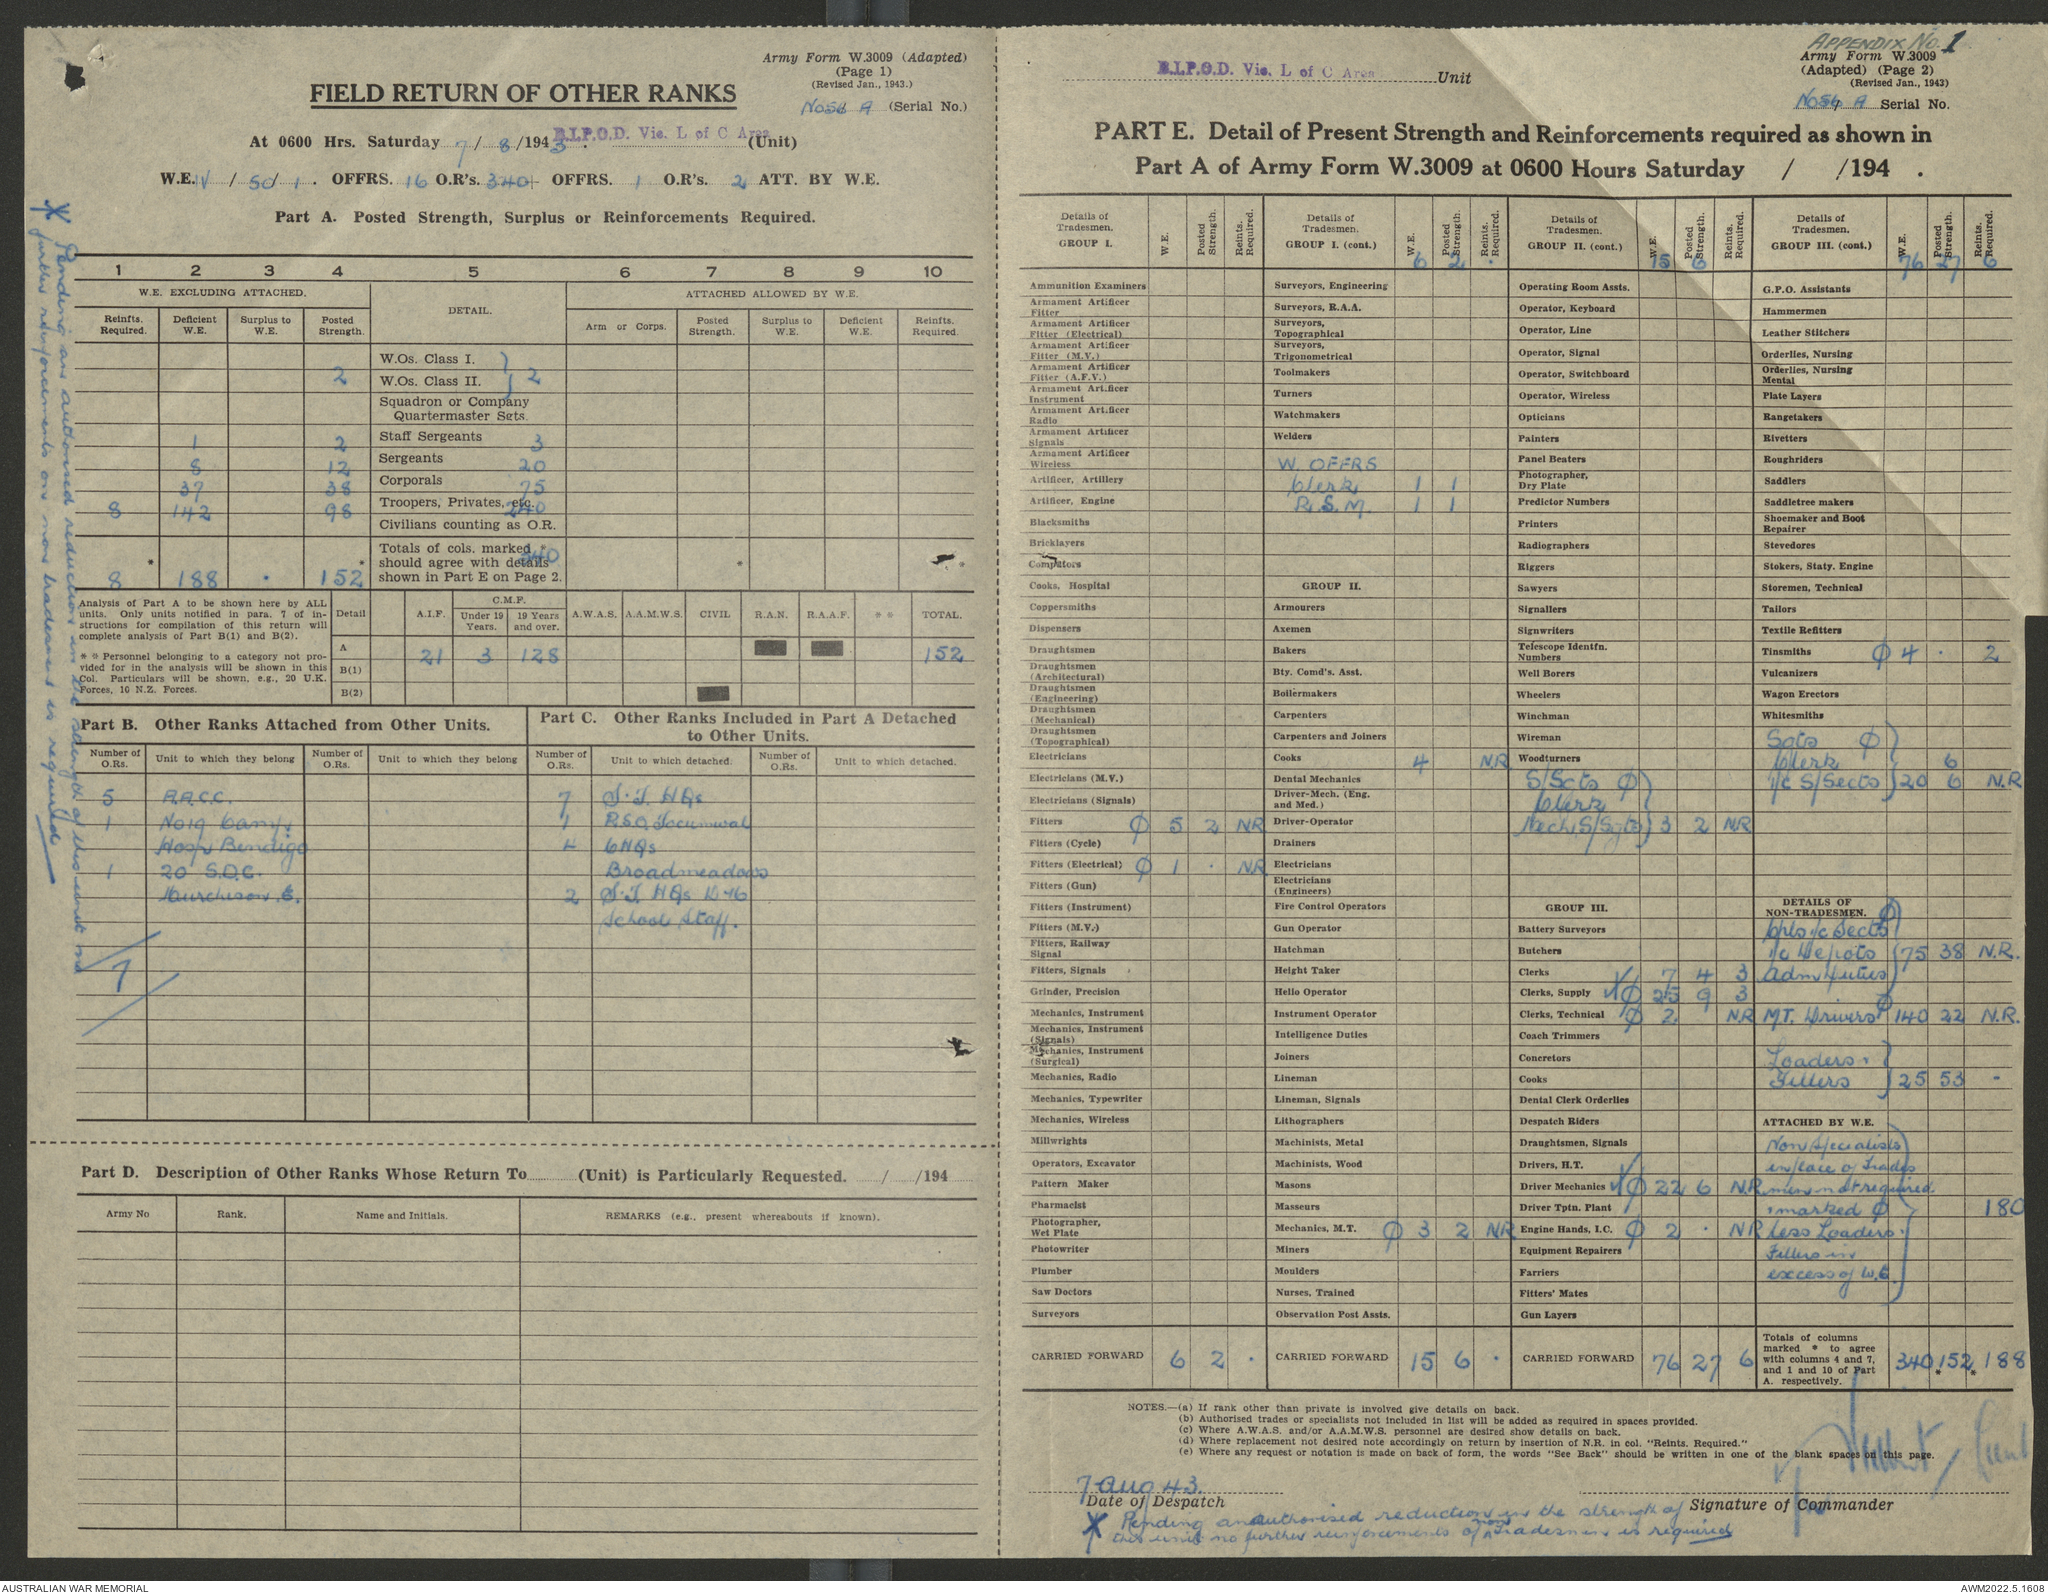 Army Form W.3009 (Adapted)
(Page 1)
(Revised Jan., 1943.)
FIELD RETURN OF OTHER RANKS
No 54 A (Serial No.)
At 0600 Hrs. Saturday 7 / 8 /1943. B.I.P.O.D. Vic. L of C Area (Unit)
W.E. IV / 50 / 1 . OFFRS. 16 O.R's. 340 OFFRS. 1 O.R's. 2 ATT. BY W.E.
Part A. Posted Strength, Surplus or Reinforcements Required.
1 2 3 4 5 6 7 8 9 10
W.E. EXCLUDING ATTACHED. DETAIL. ATTACHED ALLOWED BY W.E.
Reinfts. Required. Deficient W.E. Surplus to W.E. Posted Strength. Arm or Corps. Posted Strength. Surplus to W.E. Deficient W.E. Reinfts. Required.
W.Os. Class I.
2 W.Os. Class II. 2
Squadron or Company
Quartermaster Sgts.
1 2 Staff Sergeants 3
8 12 Sergeants 20
37 38 Corporals 75
8 142 98 Troopers, Privates, etc. 240
Civilians counting as O.R.
Totals of cols. marked *
should agree with details 340
shown in Part E on Page 2.
8 188 . 152
Analysis of Part A to be shown here by ALL
units. Only units notified in para. 7 of in-
structions for compilation of this return will
complete analysis of Part B(1) and B(2).
* * Personnel belonging to a category not pro-
vided for in the analysis will be shown in this
Col. Particulars will be shown, e.g., 20 U.K.
Forces, 10 N.Z. Forces.
Detail A.I.F. C.M.F. Under 19 Years. 19 Years and over. A.W.A.S. A.A.M.W.S. CIVIL R.A.N. R.A.A.F. * * TOTAL.
A 21 3 128 152
B(1)
B(2)
Part B. Other Ranks Attached from Other Units.
Number of O.Rs. Unit to which they belong Number of O.Rs. Unit to which they belong
5 A.A.C.C.
1 No 19 Camp
Hosp Bendigo
1 20 S.D.C.
Murchison. E.
7
Part C. Other Ranks Included in Part A Detached
to Other Units.
Number of O.Rs. Unit to which detached. Number of O.Rs. Unit to which detached.
7 S.T. HQs
1 R.S.O. Tocumwal
4 CHQs
Broadmeadows
2 S.T. HQs L 46
School Staff.
* Pending an authorised reduction in the strength of this unit no
further reinforcements on non tradesmen is required
Part D. Description of Other Ranks Whose Return To (Unit) is Particularly Requested. / /194
Army No Rank. Name and Initials. REMARKS (e.g., present whereabouts if known).
APPENDIX No. 1
Army Form W.3009
(Adapted) (Page 2)
(Revised Jan., 1943)
B.I.P.O.D. Vic. L of C Area Unit
No 54 A Serial No.
PART E. Detail of Present Strength and Reinforcements required as shown in
Part A of Army Form W.3009 at 0600 Hours Saturday / /194 .
Details of Tradesmen. GROUP I. W.E. Posted Strength. Reints. Required.
Ammunition Examiners
Armament Artificer Fitter
Armament Artificer Fitter (Electrical)
Armament Artificer Fitter (M.V.)
Armament Artificer Fitter (A.F.V.)
Armament Artificer Instrument
Armament Artificer Radio
Armament Artificer Signals
Armament Artificer Wireless
Artificer, Artillery
Artificer, Engine
Blacksmiths
Bricklayers
Computors
Cooks, Hospital
Coppersmiths
Dispensers
Draughtsmen
Draughtsmen (Architectural)
Draughtsmen (Engineering)
Draughtsmen (Mechanical)
Draughtsmen (Topographical)
Electricians
Electricians (M.V.)
Electricians (Signals)
Fitters Ø 5 2 NR
Fitters (Cycle)
Fitters (Electrical) Ø 1 . NR
Fitters (Gun)
Fitters (Instrument)
Fitters (M.V.)
Fitters, Railway Signal
Fitters, Signals
Grinder, Precision
Mechanics, Instrument
Mechanics, Instrument (Signals)
Mechanics, Instrument (Surgical)
Mechanics, Radio
Mechanics, Typewriter
Mechanics, Wireless
Millwrights
Operators, Excavator
Pattern Maker
Pharmacist
Photographer, Wet Plate
Photowriter
Plumber
Saw Doctors
Surveyors
CARRIED FORWARD 6 2 .
Details of Tradesmen. GROUP I. (cont.) W.E. Posted Strength. Reints. Required.
6 2 .
Surveyors, Engineering
Surveyors, R.A.A.
Surveyors, Topographical
Surveyors, Trigonometrical
Toolmakers
Turners
Watchmakers
Welders
W. OFFRS
Clerk 1 1
R.S.M. 1 1
GROUP II.
Armourers
Axemen
Bakers
Bty. Comd's. Asst.
Boilermakers
Carpenters
Carpenters and Joiners
Cooks 4 N.R
Dental Mechanics
Driver-Mech. (Eng. and Med.)
Driver-Operator
Drainers
Electricians
Electricians (Engineers)
Fire Control Operators
Gun Operator
Hatchman
Height Taker
Helio Operator
Instrument Operator
Intelligence Duties
Joiners
Lineman
Lineman, Signals
Lithographers
Machinists, Metal
Machinists, Wood
Masons
Masseurs
Mechanics, M.T. Ø 3 2 NR
Miners
Moulders
Nurses, Trained
Observation Post Assts.
CARRIED FORWARD 15 6 .
Details of Tradesmen. GROUP II. (cont.) W.E. Posted Strength. Reints. Required.
15 6
Operating Room Assts.
Operator, Keyboard
Operator, Line
Operator, Signal
Operator, Switchboard
Operator, Wireless
Opticians
Painters
Panel Beaters
Photographer, Dry Plate
Predictor Numbers
Printers
Radiographers
Riggers
Sawyers
Signallers
Signwriters
Telescope Identfn. Numbers
Well Borers
Wheelers
Winchman
Wireman
Woodturners
S/Sgts Ø
Clerk
Mech. S/Sgts 3 2 NR
GROUP III.
Battery Surveyors
Butchers
Clerks 7 4 3
Clerks, Supply Ø 25 9 3
Clerks, Technical Ø 2 N.R
Coach Trimmers
Concretors
Cooks
Dental Clerk Orderlies
Despatch Riders
Draughtsmen, Signals
Drivers, H.T.
Driver Mechanics Ø 22 6 N.R
Driver Tptn. Plant
Engine Hands, I.C. Ø 2 . NR
Equipment Repairers
Farriers
Fitters' Mates
Gun Layers
CARRIED FORWARD 76 27 6
Details of Tradesmen. GROUP III. (cont.) W.E. Posted Strength. Reints. Required.
76 27 6
G.P.O. Assistants
Hammermen
Leather Stitchers
Orderlies, Nursing
Orderlies, Nursing Mental
Plate Layers
Rangetakers
Rivetters
Roughriders
Saddlers
Saddletree makers
Shoemaker and Boot Repairer
Stevedores
Stokers, Staty. Engine
Storemen, Technical
Tailors
Textile Refitters
Tinsmiths Ø 4 . 2
Vulcanizers
Wagon Erectors
Whitesmiths
Sgts Ø
Clerk 6
i/c S/Sects 20 6 N.R
DETAILS OF NON-TRADESMEN. Ø
Cpls i/c Sects
i/c Depots 75 38 N.R.
Adm Duties
M.T. Drivers Ø 140 22 N.R.
Loaders.
Fillers 25 53 -
ATTACHED BY W.E.
Non Specialists
in place of Trades
men not required.
marked Ø 180
less Loaders.
Fillers in
excess of W.E.
Totals of columns
marked * to agree
with columns 4 and 7,
and 1 and 10 of Part
A. respectively. 340 152 188
NOTES.—(a) If rank other than private is involved give details on back.
(b) Authorised trades or specialists not included in list will be added as required in spaces provided.
(c) Where A.W.A.S. and/or A.A.M.W.S. personnel are desired show details on back.
(d) Where replacement not desired note accordingly on return by insertion of N.R. in col. "Reints. Required."
(e) Where any request or notation is made on back of form, the words "See Back" should be written in one of the blank spaces on this page.
7 Aug 43.
Date of Despatch
Signature of Commander
* Pending an authorised reduction in the strength of
this unit no further reinforcements of non tradesmen is required
AUSTRALIAN WAR MEMORIAL
AWM2022.5.1608